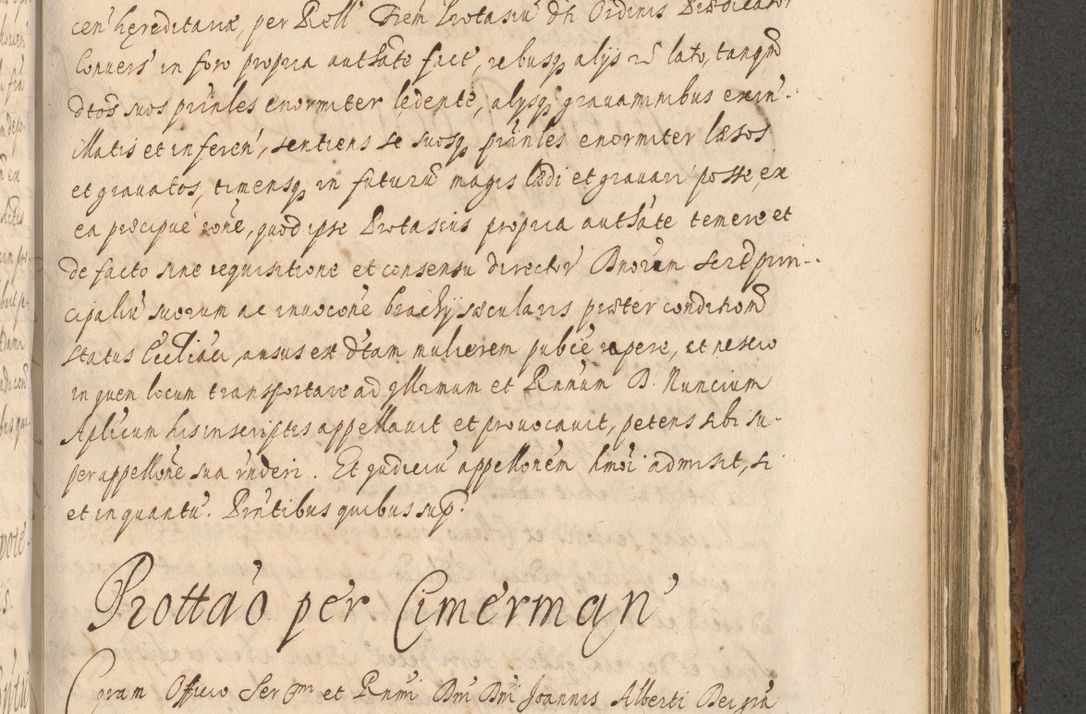 cen hęreditariæ, per Roll Fren Protasiu dh Ordinis Prædicator
Conuers in foro propria authate fact, rebusq alijs rõ lato, tanqm
dtos suos prinles enormiter lędente, alijsq grauaminibus exin-
illatis et inferen, sentiens se suosq prinles enormiter læsos
et grauatos, timensq in futurũ magis lædi et grauari posse, ex
ea præcipuè rone, quod ipse Protasius propria authate temere et
de facto sine requisitione et consensu director Bnorum seu prin-
cipaliũ suorum ac inuocone brachij sæcularis præter conditionem
status Ecclliaci, ausus est dtam mulierem publce rapere, et nescio
in quem locum transportare ad Illrimum et Rnnum D. Nuncium
Aplicum his in scriptis appellauit et prouocauit, petens sibi su-
per appellone sua rnderi. Et judiciũ appellonem hmoi admisit, si
et in quantũ. Prntibus quibus sup.
Prottao per Cimerman
Coram Officio Ser. et Rnmi Dni Dni Joannis Alberti Dei gra